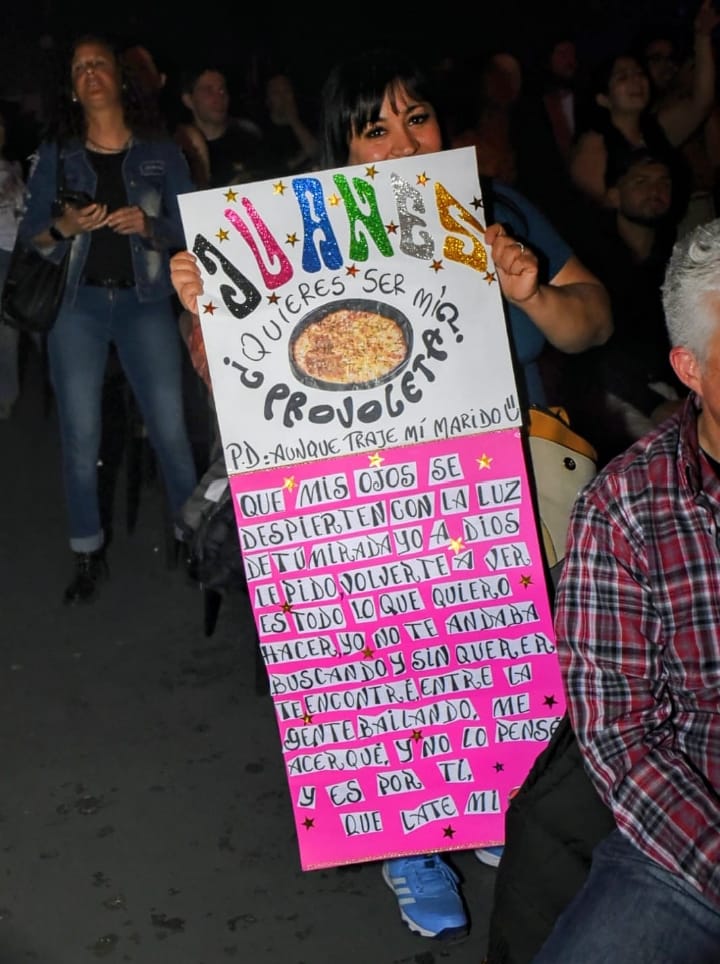 JUANES
¿QUIERES SER MÍ
PROVOLETA?
P.D: AUNQUE TRAJE MÍ MARIDO
QUE MIS OJOS SE
DESPIERTEN CON LA LUZ
DE TÚ MIRADA YO A DIOS
LE PIDO, VOLVERTE A VER
ES TODO LO QUE QUIERO
HACER, YO NO TE ANDABA
BUSCANDO Y SIN QUERER
TE ENCONTRÉ, ENTRE LA
GENTE BAILANDO, ME
ACERQUÉ, Y NO LO PENSÉ
Y ES POR TÍ,
QUE LATE MI